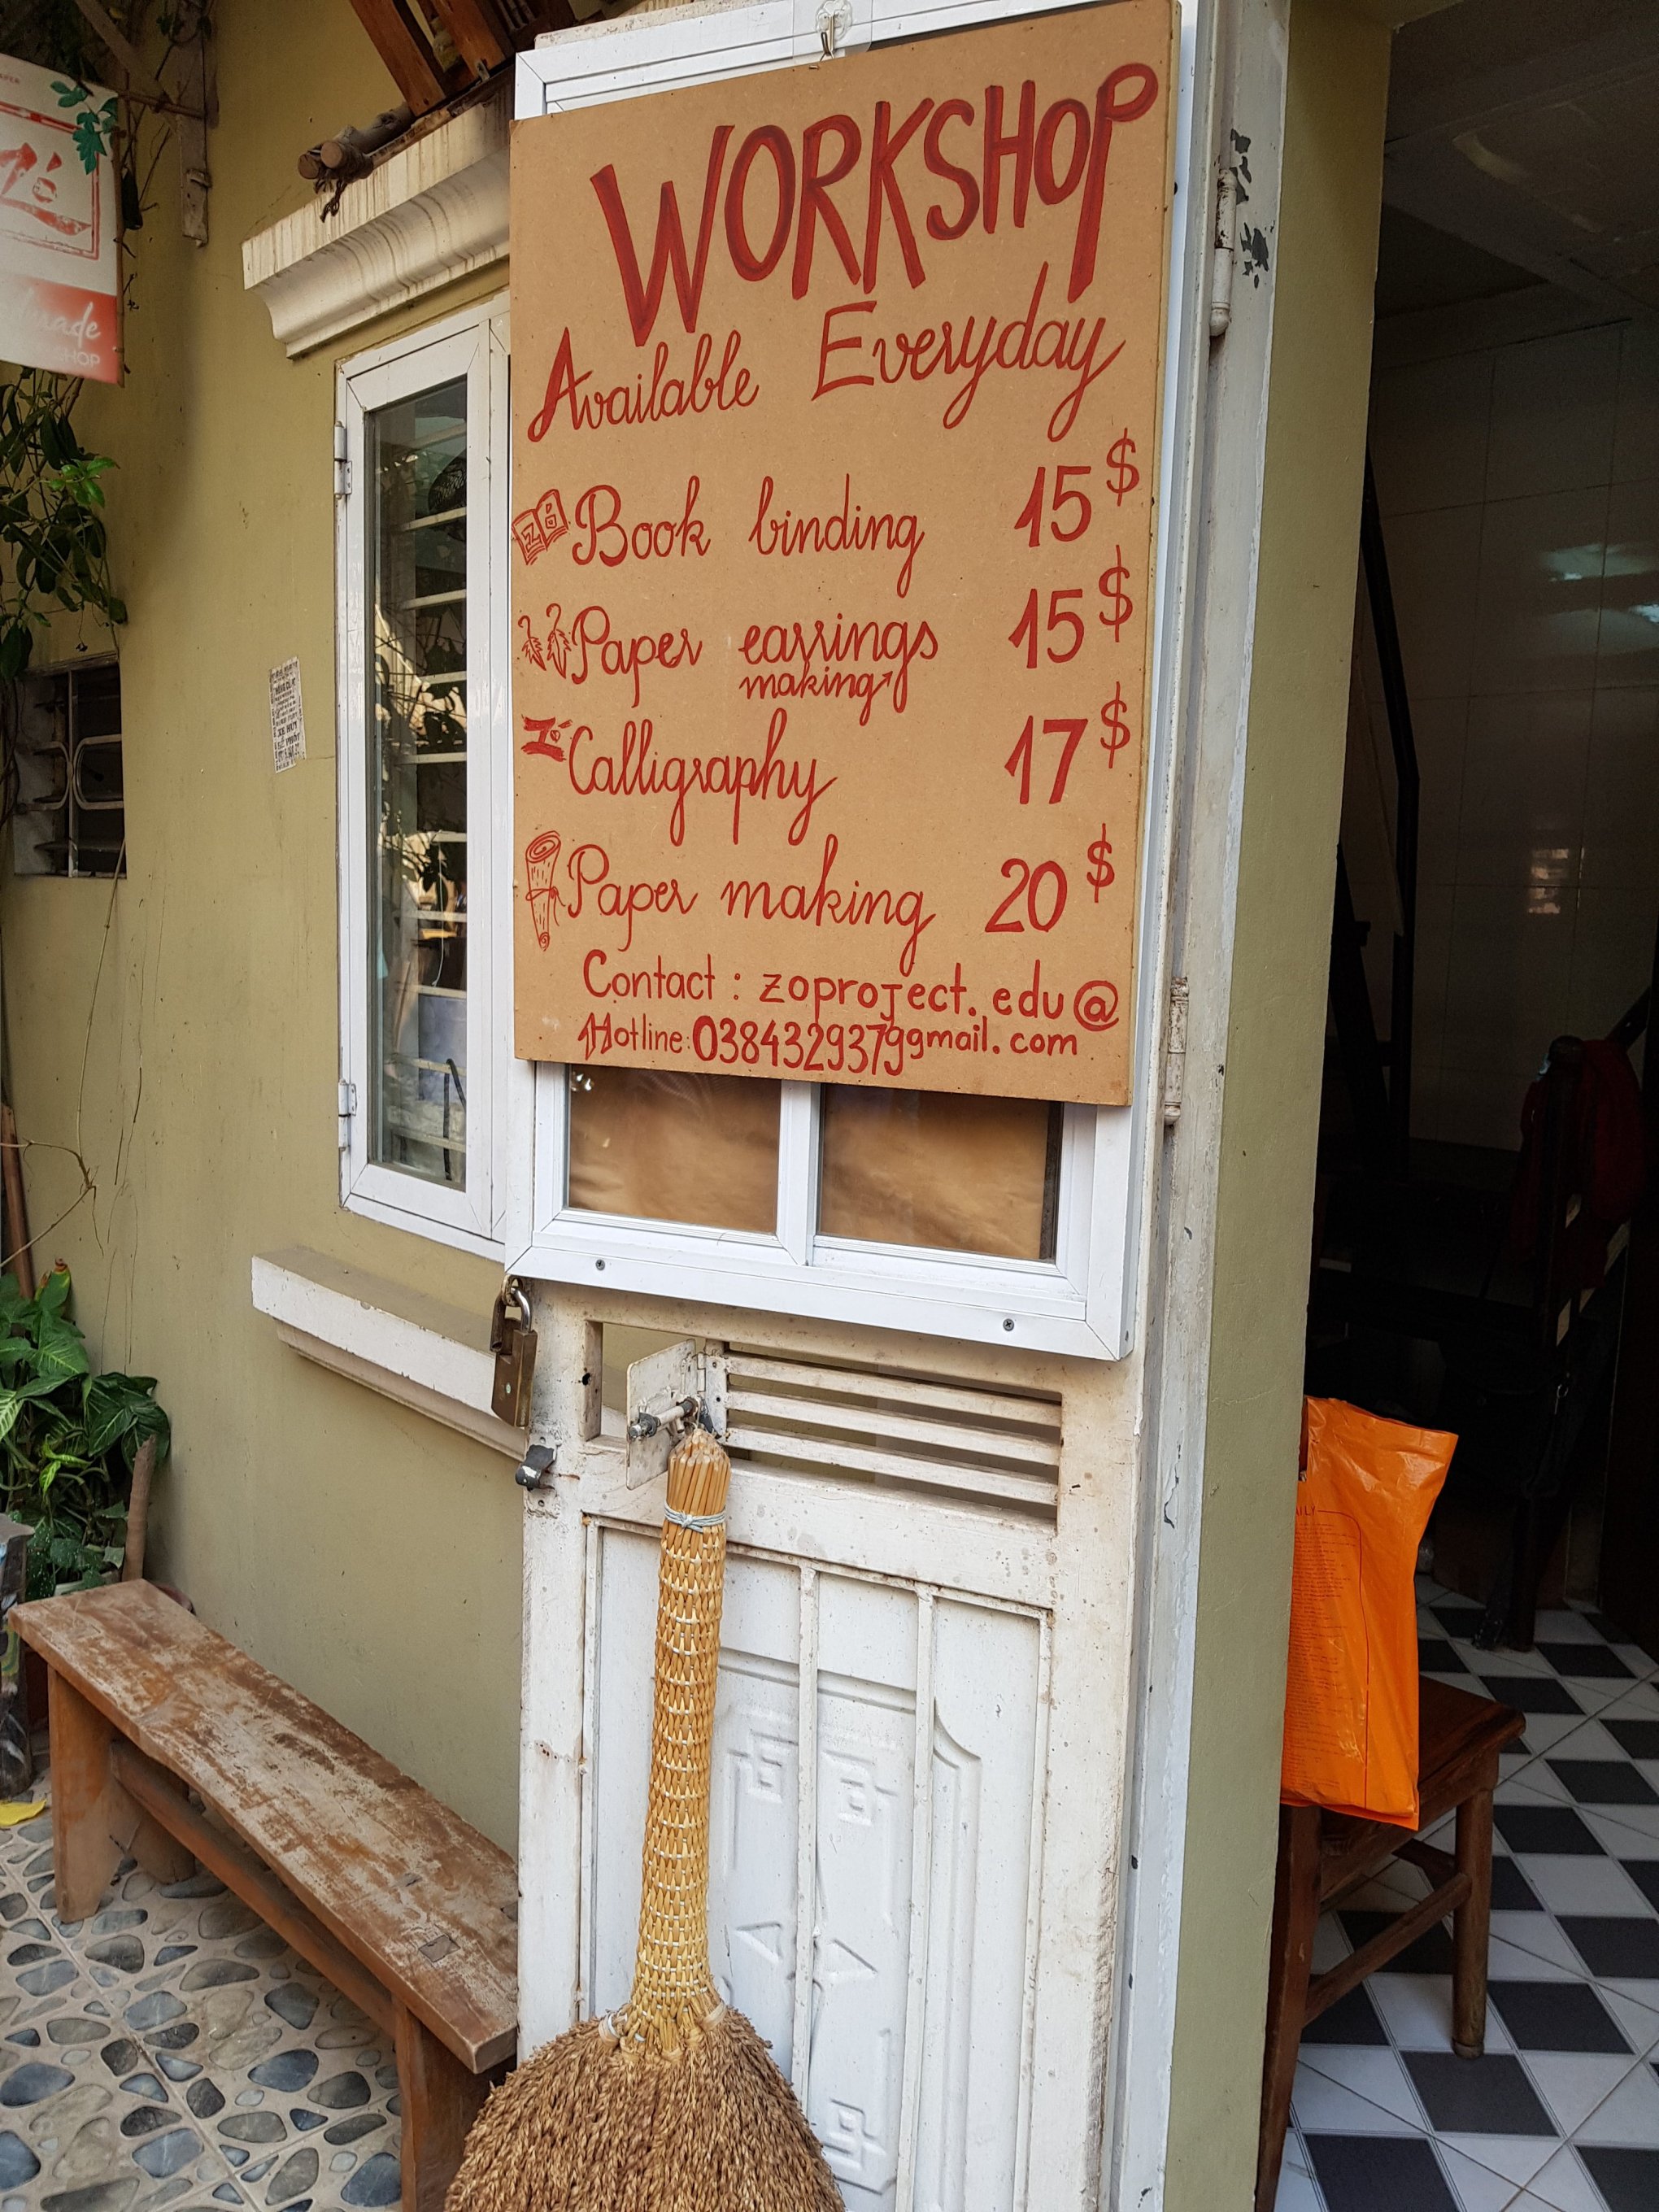 WORKSHOP
Available Everyday
Book binding 15$
Paper earrings 15$
making
Calligraphy 17$
Paper making 20$
Contact : zoproject.edu@
Hotline: 0384329379 gmail.com
Zó
made
SHOP